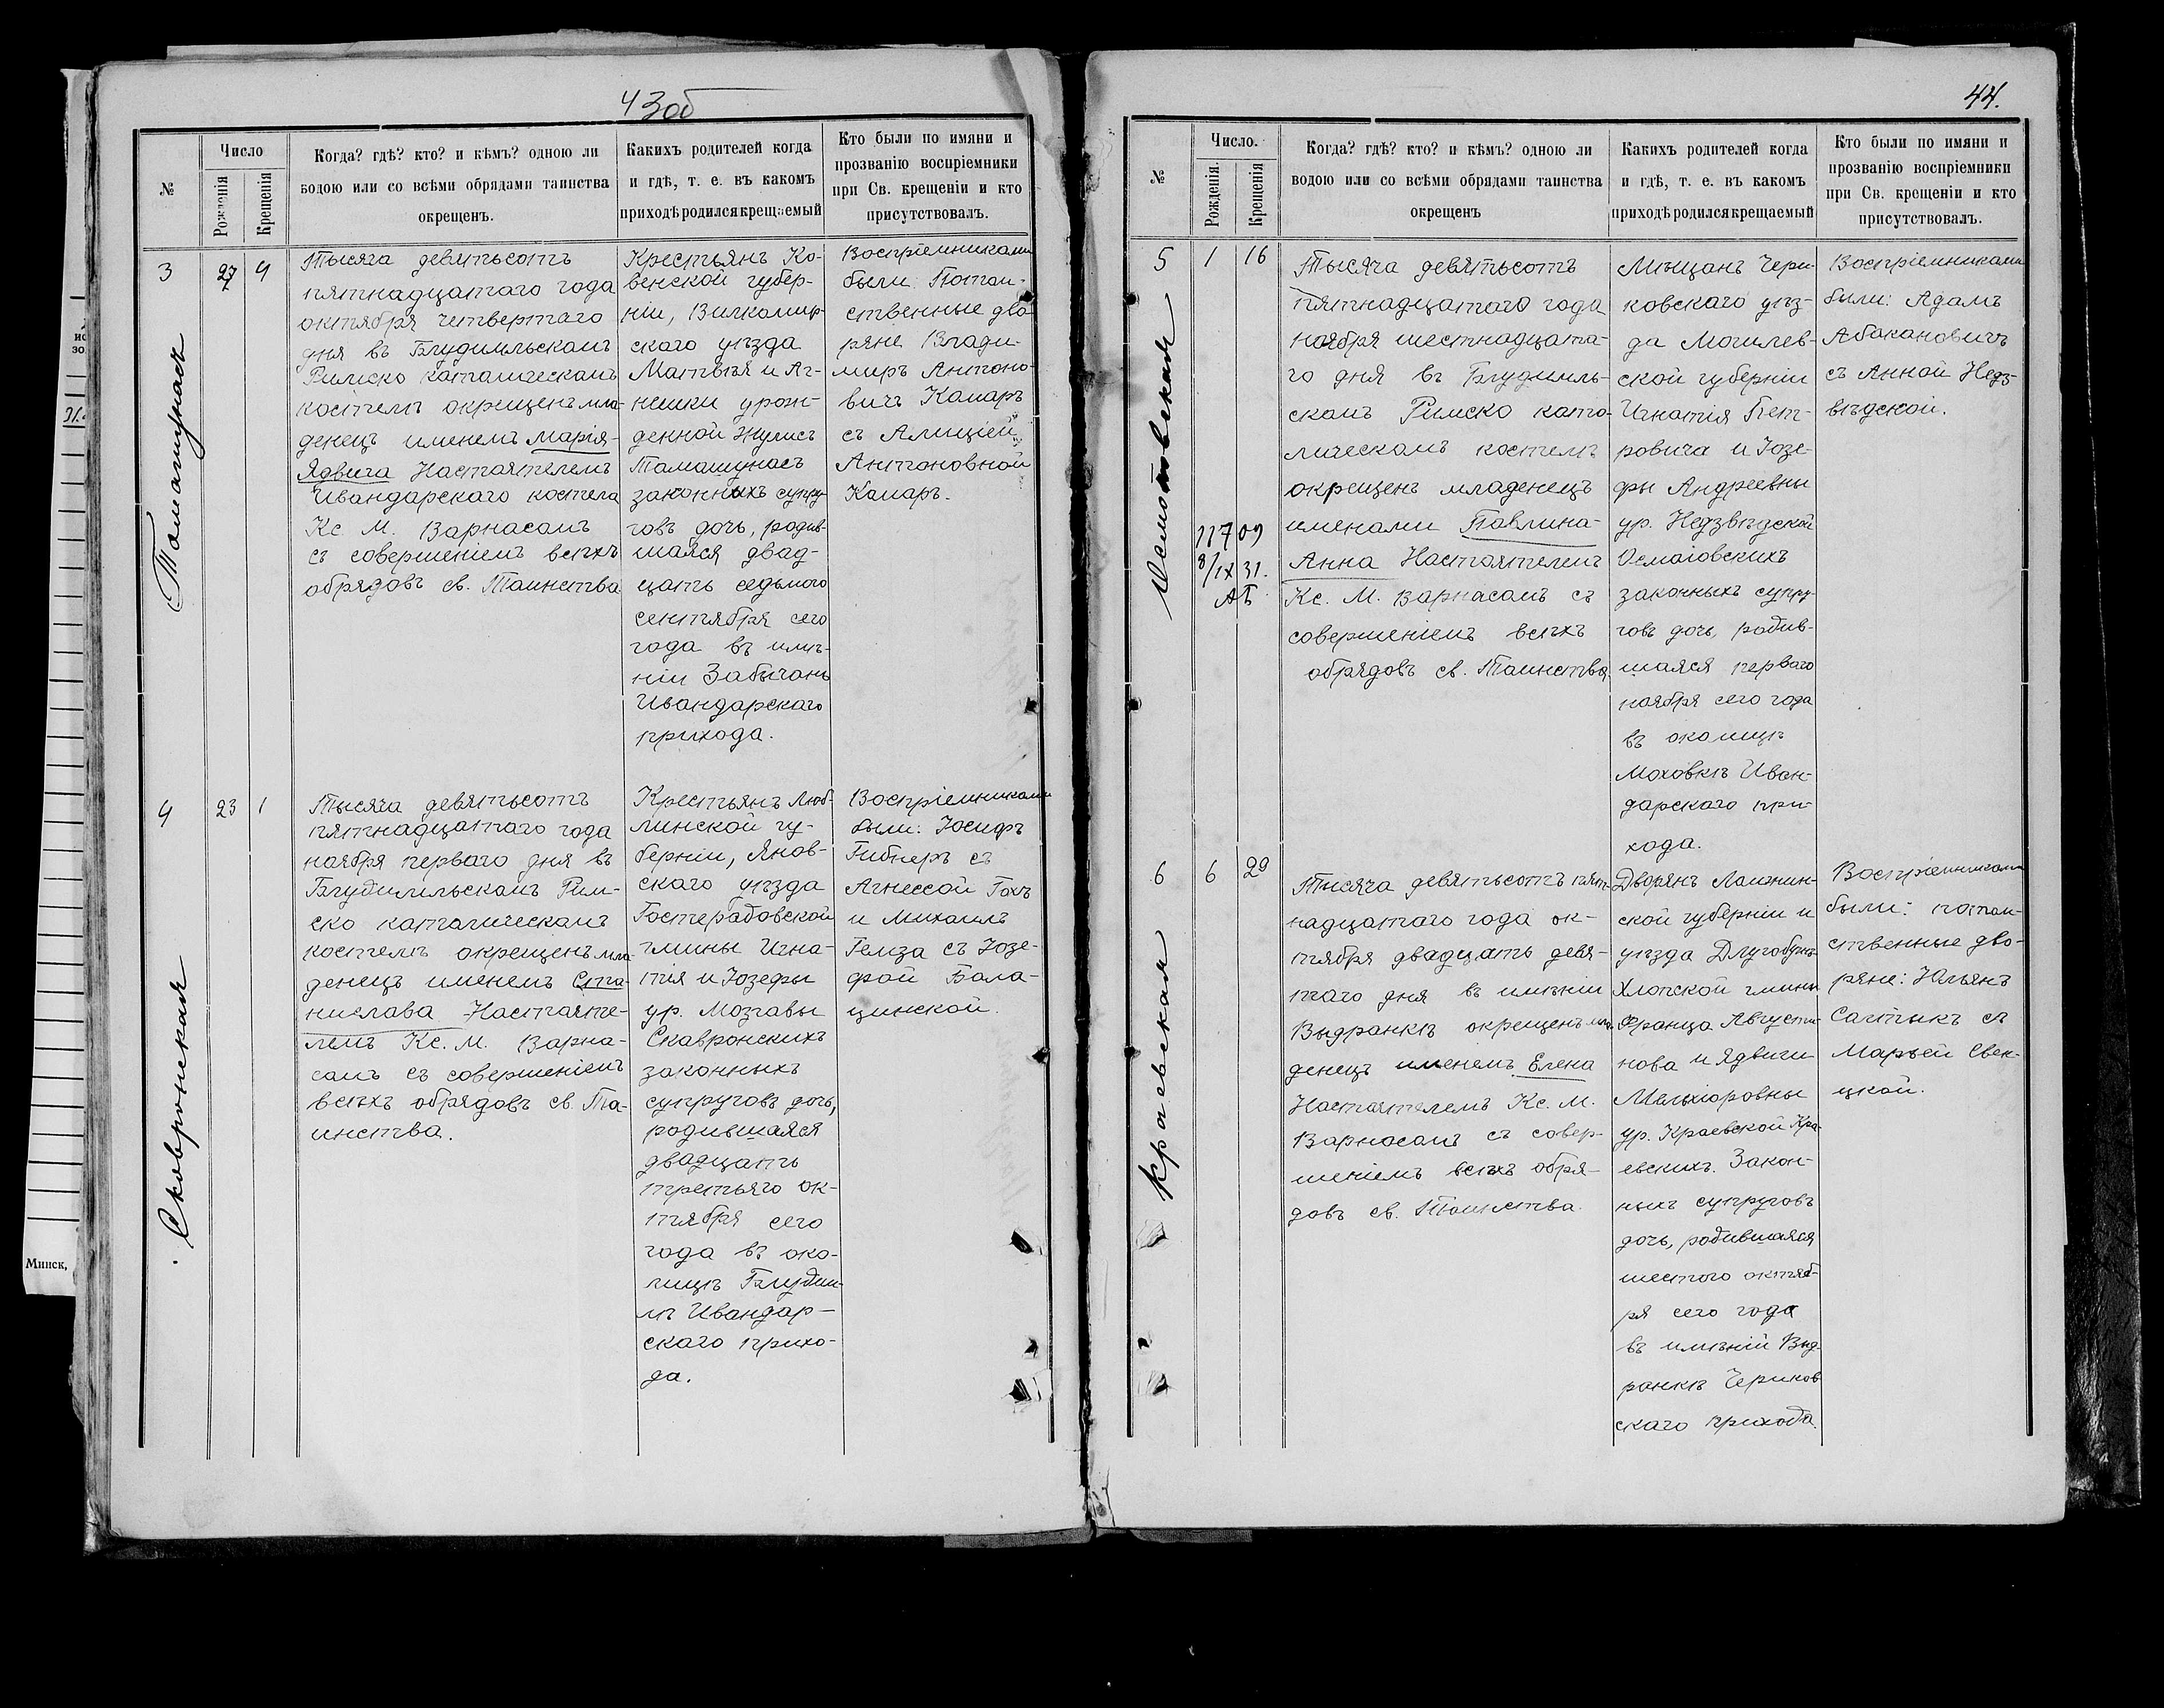 43об
№
Число
Рожденія
Крещенія
Когда? гдѣ? кто? и кѣмъ? одною ли
водою или со всѣми обрядами таинства
окрещенъ.
Какихъ родителей когда
и гдѣ, т. е. въ какомъ
приходѣ родился крещаемый
Кто были по имяни и
прозванію воспріемники
при Св. крещеніи и кто
присутствовалъ.
3
Томашунасъ
27
4
Тысяча девятьсотъ
пятнадцатаго года
октября четвертаго
дня въ Блудимльскомъ
Римско католическомъ
костелѣ окрещенъ мла-
денецъ именемъ Марія-
Ядвига Настоятелемъ
Ивандарскаго костела
Кс М. Варнасомъ
съ совершеніемъ всѣхъ
обрядовъ св. Таинства
Крестьянъ Ко-
венской губер-
ніи, Вилкомир-
скаго уѣзда
Матвѣя и Аг-
нешки урож-
денной Жулисъ
Томашунасъ
законныхъ супру-
говъ дочь, родив-
шаяся двад-
цать седьмого
сентября сего
года въ имѣ-
ніи Забычань
Ивандарскаго
прихода.
Воспріемниками
были: Потом-
ственные дво-
ряне Влади-
миръ Антоно-
вичъ Комаръ
съ Алиціей
Антоновной
Комаръ.
4
Сковронская
23
1
Тысяча девятьсотъ
пятнадцатаго года
ноября перваго дня въ
Блудимльскомъ Рим-
ско католическомъ
костелѣ окрещенъ мла-
денецъ именемъ Ста-
нислава Настояте-
лемъ Кс. М. Варна-
сомъ съ совершеніемъ
всѣхъ обрядовъ св. Та-
инства.
Крестьянъ Люб-
линской гу-
берніи, Янов-
скаго уѣзда
Гостерадовской
гмины Игна-
тія и Іозефы
ур. Мозгавы
Скавронскихъ
законныхъ
супруговъ дочь,
родившаяся
двадцать
третьяго ок-
тября сего
года въ око-
лицѣ Блудим-
лѣ Ивандар-
скаго прихо-
да.
Воспріемниками
были: Іосифъ
Гибнеръ съ
Агнессой Гохъ
и Михаилъ
Гемза съ Іозе-
фой Бала-
цинской.
44.
№
Число.
Рожденія.
Крещенія
Когда? гдѣ? кто? и кѣмъ? одною ли
водою или со всѣми обрядами таинства
окрещенъ
Какихъ родителей когда
и гдѣ, т. е. въ какомъ
приходѣ родился крещаемый
Кто были по имяни и
прозванію воспріемники
при Св. крещеніи и кто
присутствовалъ.
5
1
16
11709
8/IX 31.
АБ
Тысяча девятьсотъ
пятнадцатаго года
ноября шестнадцата-
го дня въ Блудимль-
скомъ Римско като-
лическомъ костелѣ
окрещенъ младенецъ
именами Павлина-
Анна Настоятелемъ
Кс. М. Варнасомъ съ
совершеніемъ всѣхъ
обрядовъ св. Таинства
Мѣщанъ Чери-
ковскаго уѣз-
да Могилев-
ской губерніи
Игнатія Пет-
ровича и Іозе-
фы Андреевны
ур. Недзвѣдской
Осмоловскихъ
законныхъ супру-
говъ дочь, родив-
шаяся перваго
ноября сего года
въ околицѣ
Моховкѣ Иван-
дарскаго при-
хода.
Воспріемниками
были: Адамъ
Абакановичъ
съ Анной Недз-
вѣдской.
6
Краевская
6
29
Тысяча девятьсотъ пят-
надцатаго года ок-
тября двадцать девя-
таго дня въ имѣніи
Выдранкѣ окрещенъ мла-
денецъ именемъ Елена
Настоятелемъ Кс. М.
Варносомъ съ совер-
шеніемъ всѣхъ обря-
довъ св. Таинства.
Дворянъ Ломжин-
ской губерніи и
уѣзда Длугобужъ
Хлопской гмины
Франца Августи-
нова и Ядвиги
Мельхіоровны
ур. Краевской Кра-
евскихъ. Закон-
ныхъ супруговъ
дочь, родившаяся
шестого октяб-
ря сего года
въ имѣніи Выд-
ранкѣ Чериков
скаго прихода.
Воспріемниками
были: потом-
ственные дво-
ряне: Юльянъ
Солтыкъ съ
Марьей Свен-
цкой.
Минск,